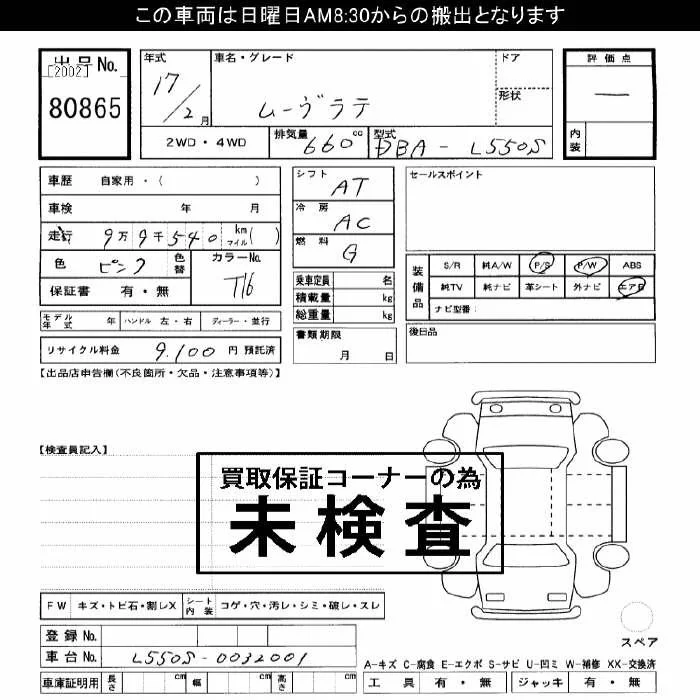 この車両は日曜日AM8:30からの搬出となります
出品No.
[2002]
80865
年式
17/2月
車名・グレード
ムーヴラテ
ドア
形状
評価点
—
内装
2WD・4WD
排気量 660cc
型式 DBA-L550S
車歴 自家用・( )
車検 年 月
走行 9万9千540 km マイル( )
色 ピンク
色替
カラーNo.
T16
保証書 有・無
モデル年式 年
ハンドル 左・右
ディーラー・並行
リサイクル料金 9,100円 預託済
シフト AT
冷房 AC
燃料 G
乗車定員 名
積載量 kg
総重量 kg
書類期限
月 日
セールスポイント
装備品
S/R 純A/W P/S P/W ABS
純TV 純ナビ 革シート 外ナビ エアB
ナビ型番:
後日品
【出品店申告欄(不良箇所・欠品・注意事項等)】
【検査員記入】
買取保証コーナーの為
未検査
FW キズ・トビ石・割レX
シート内装 コゲ・穴・汚レ・シミ・破レ・スレ
登録No.
車台No. L550S-0032001
車庫証明用 長さ cm 幅 cm 高さ cm
スペア
A-キズ C-腐食 E-エクボ S-サビ U-凹ミ W-補修 XX-交換済
工具 有・無 ジャッキ 有・無